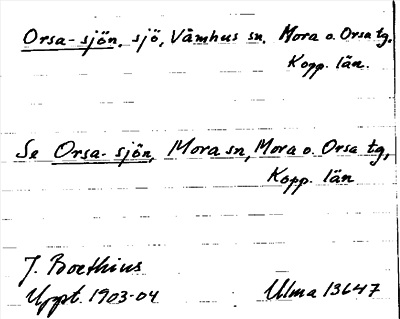 Orsa-sjön, sjö, Våmhus sn, Mora o. Orsa tg,
Kopp. län.
Se Orsa-sjön, Mora sn, Mora o. Orsa tg,
Kopp. län
J. Boethius
Uppt. 1903-04 Ulma 13647